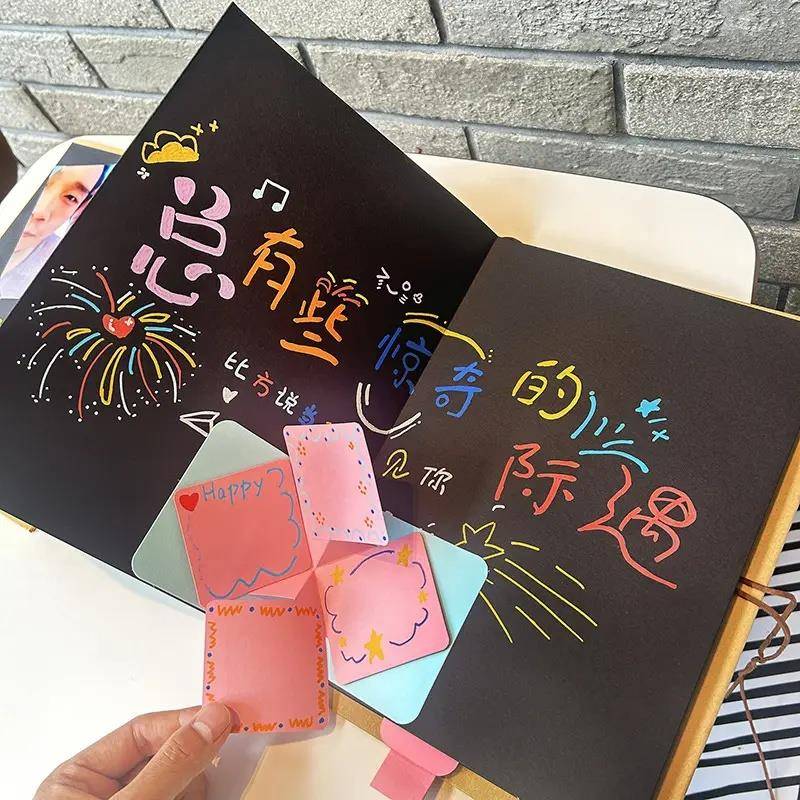 总有些惊奇的
际遇
比方说当
见你
Happy